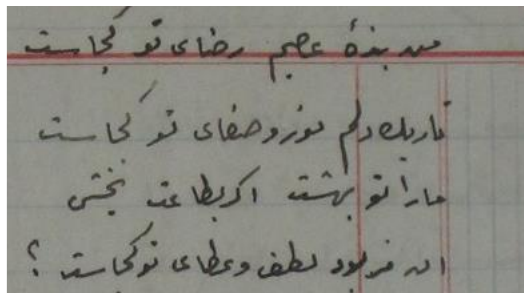 من بندهٔ عاصیم رضای تو کجاست
تاریک دلم نور و صفای تو کجاست
ما را تو بهشت اگر بطاعت بخشی
این مزد بود لطف و عطای تو کجاست؟